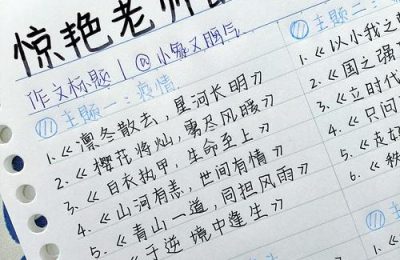 惊艳老师
作文标题 | @小
主题一：疫情
1.《凛冬散去，星河长明》
2.《樱花将灿，雾尽风暖》
3.《白衣执甲，生命至上》
4.《山河有恙，世间有情》
5.《青山一道，同担风雨》
《于逆境中逢生》
主题二：
1.《以小我之
2.《国之强
3.《立时代
4.《只问
5.《走好
6.《
主题